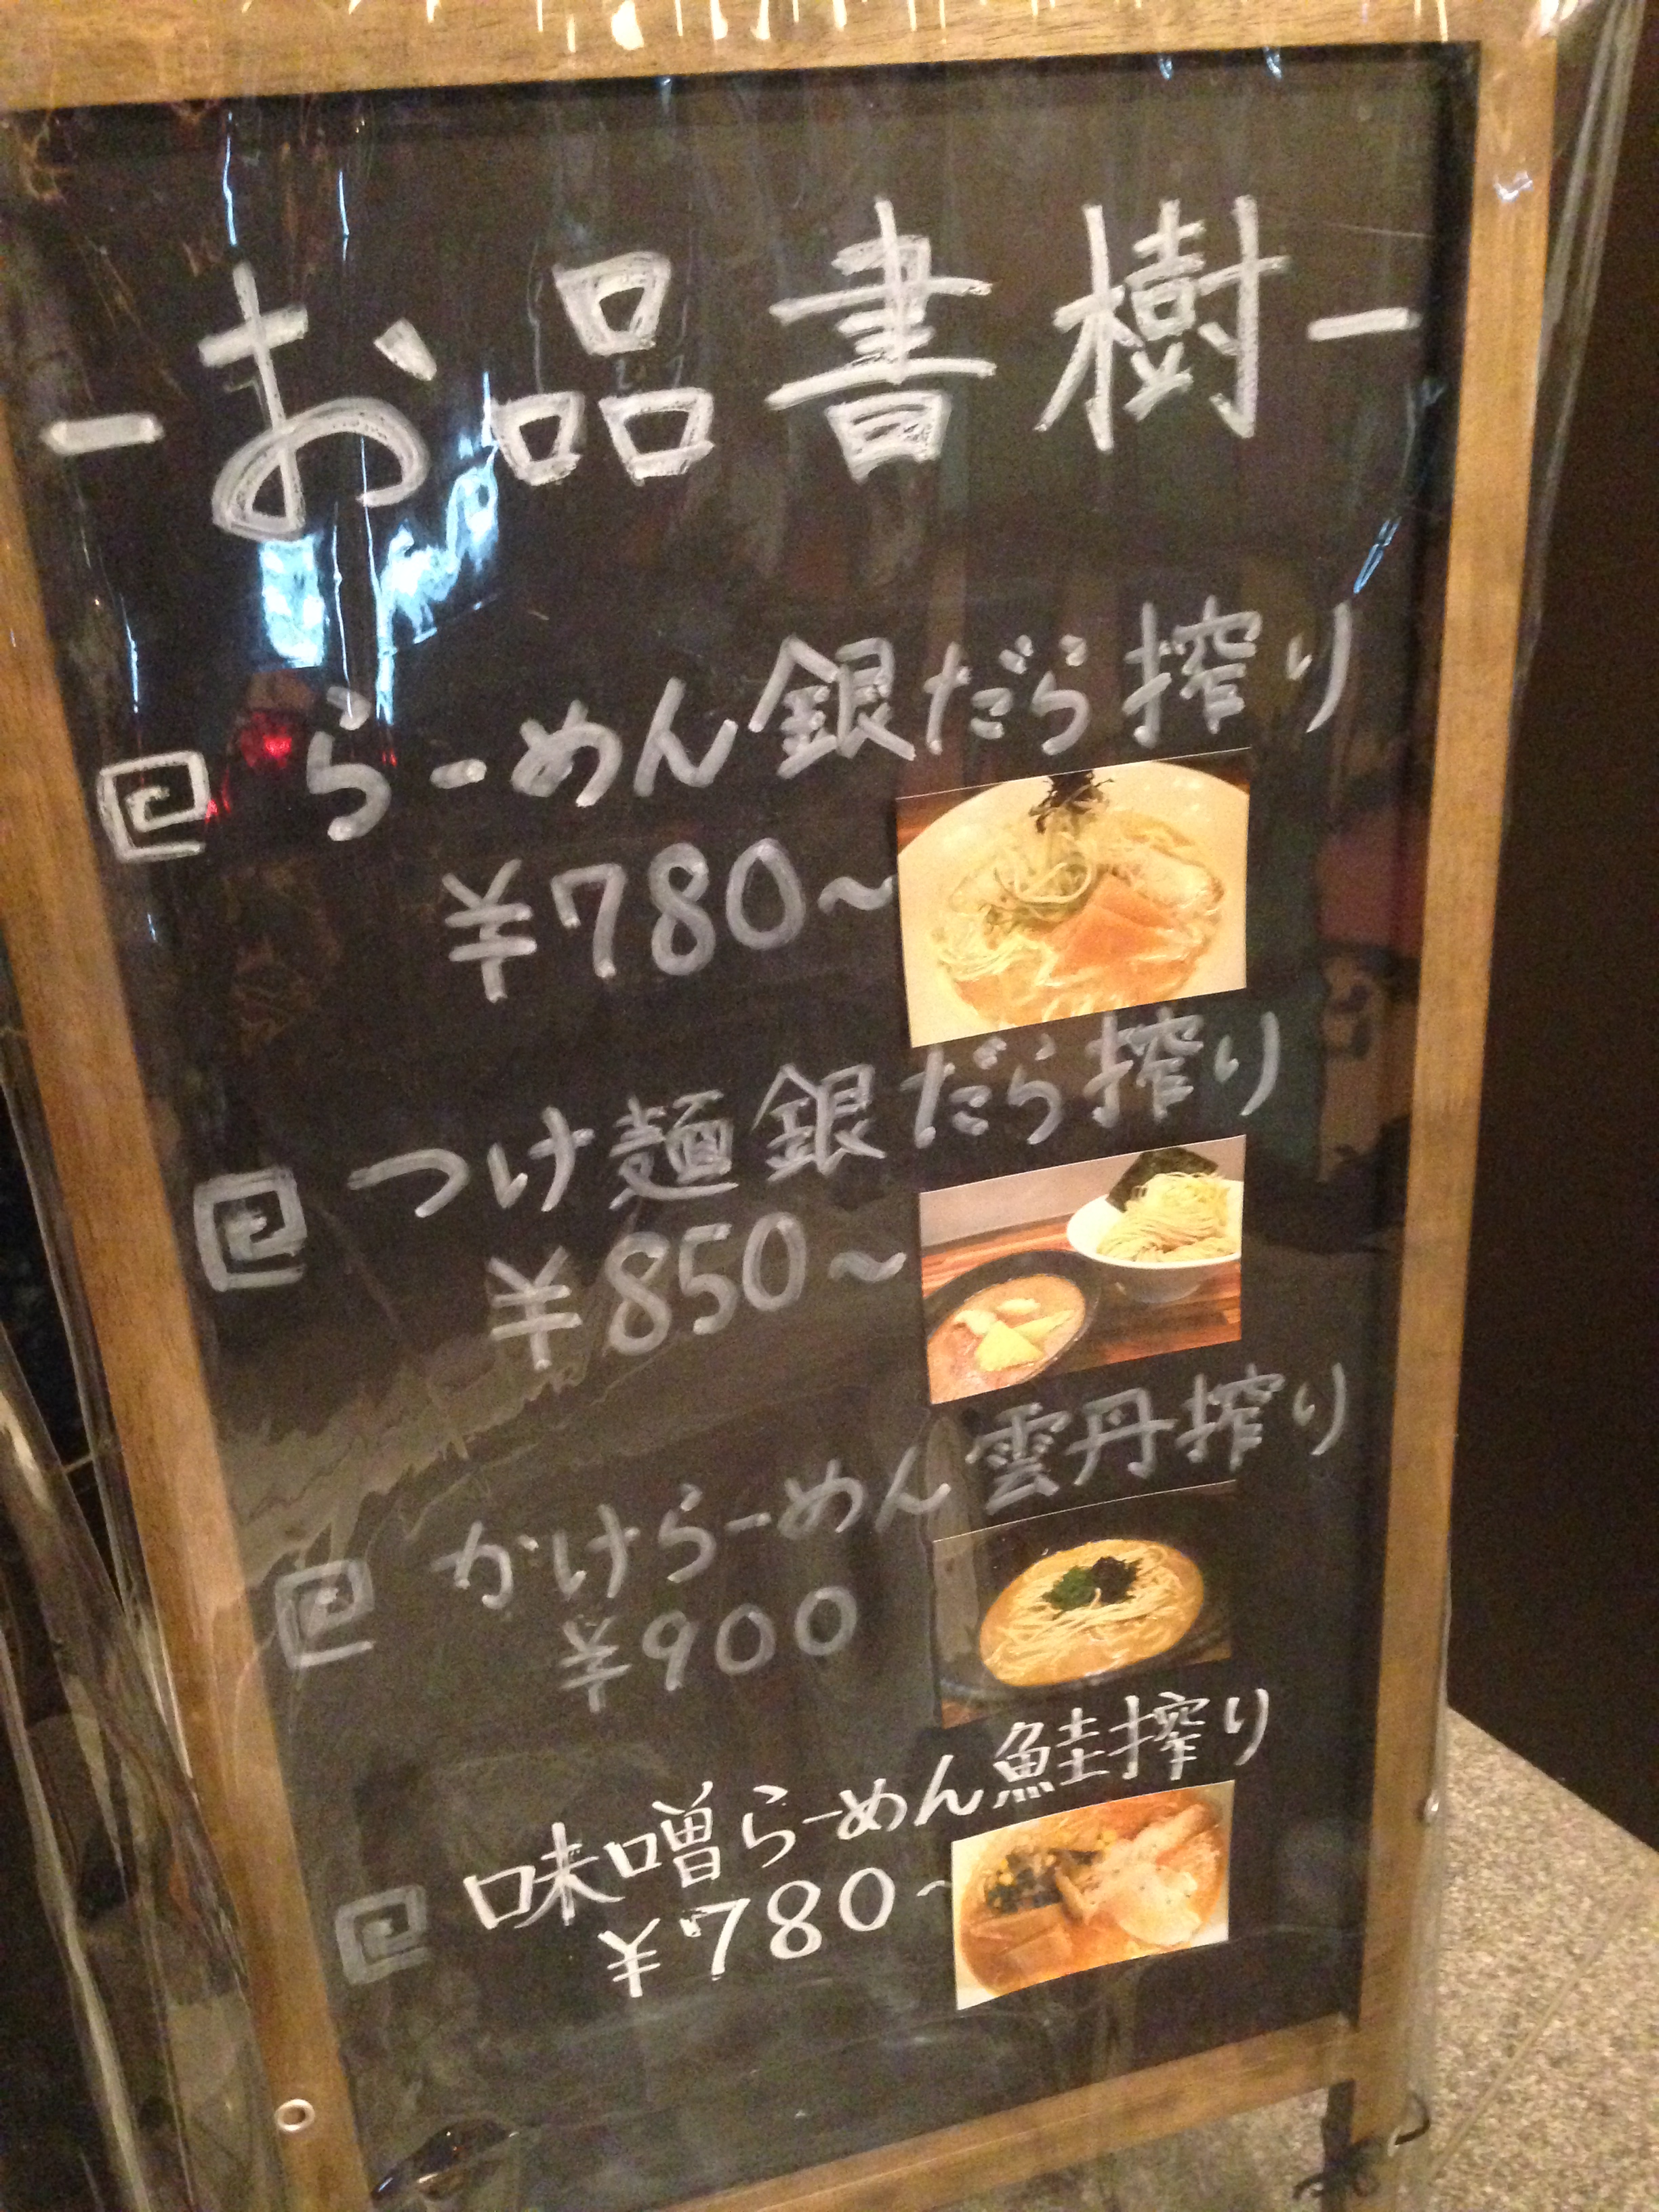 -お品書樹-
らーめん銀だら搾り
¥780~
つけ麺銀だら搾り
¥850~
かけらーめん雲丹搾り
¥900
味噌らーめん鮭搾り
¥780~